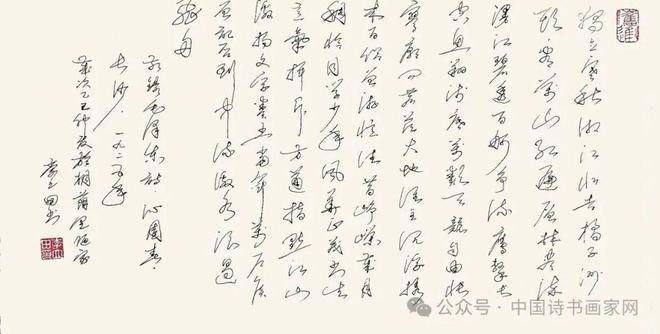 独立寒秋湘江北去橘子洲
头看万山红遍层林尽染
漫江碧透百舸争流鹰击长
空鱼翔浅底万类霜天竞自由怅
寥廓问苍茫大地谁主沉浮携
来百侣曾游忆往昔峥嵘岁月
稠恰同学少年风华正茂书生
意气挥斥方遒指点江山
激扬文字粪土当年万户侯
曾记否到中流击水浪遏
飞舟
敬录毛泽东诗沁园春·
长沙·一九二五年
岁次乙巳仲夏於桐荫里
田书
公众号·中国诗书画家网